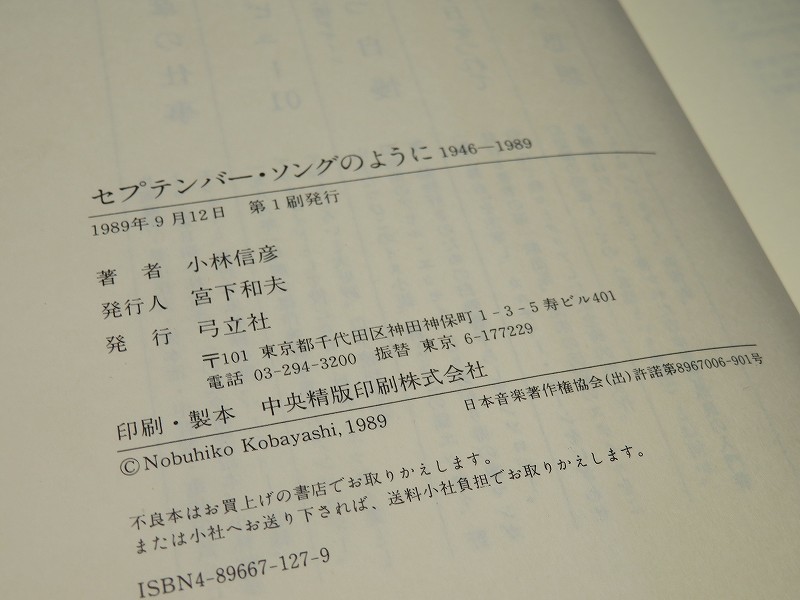 セプテンバー・ソングのように 1946—1989
1989年9月12日 第1刷発行
著者 小林信彦
発行人 宮下和夫
発行 弓立社
〒101 東京都千代田区神田神保町1-3-5寿ビル401
電話 03-294-3200 振替 東京 6-177229
印刷・製本 中央精版印刷株式会社
日本音楽著作権協会(出)許諾第8967006-901号
©Nobuhiko Kobayashi, 1989
不良本はお買上げの書店でお取りかえします。
または小社へお送り下されば、送料小社負担でお取りかえします。
ISBN4-89667-127-9